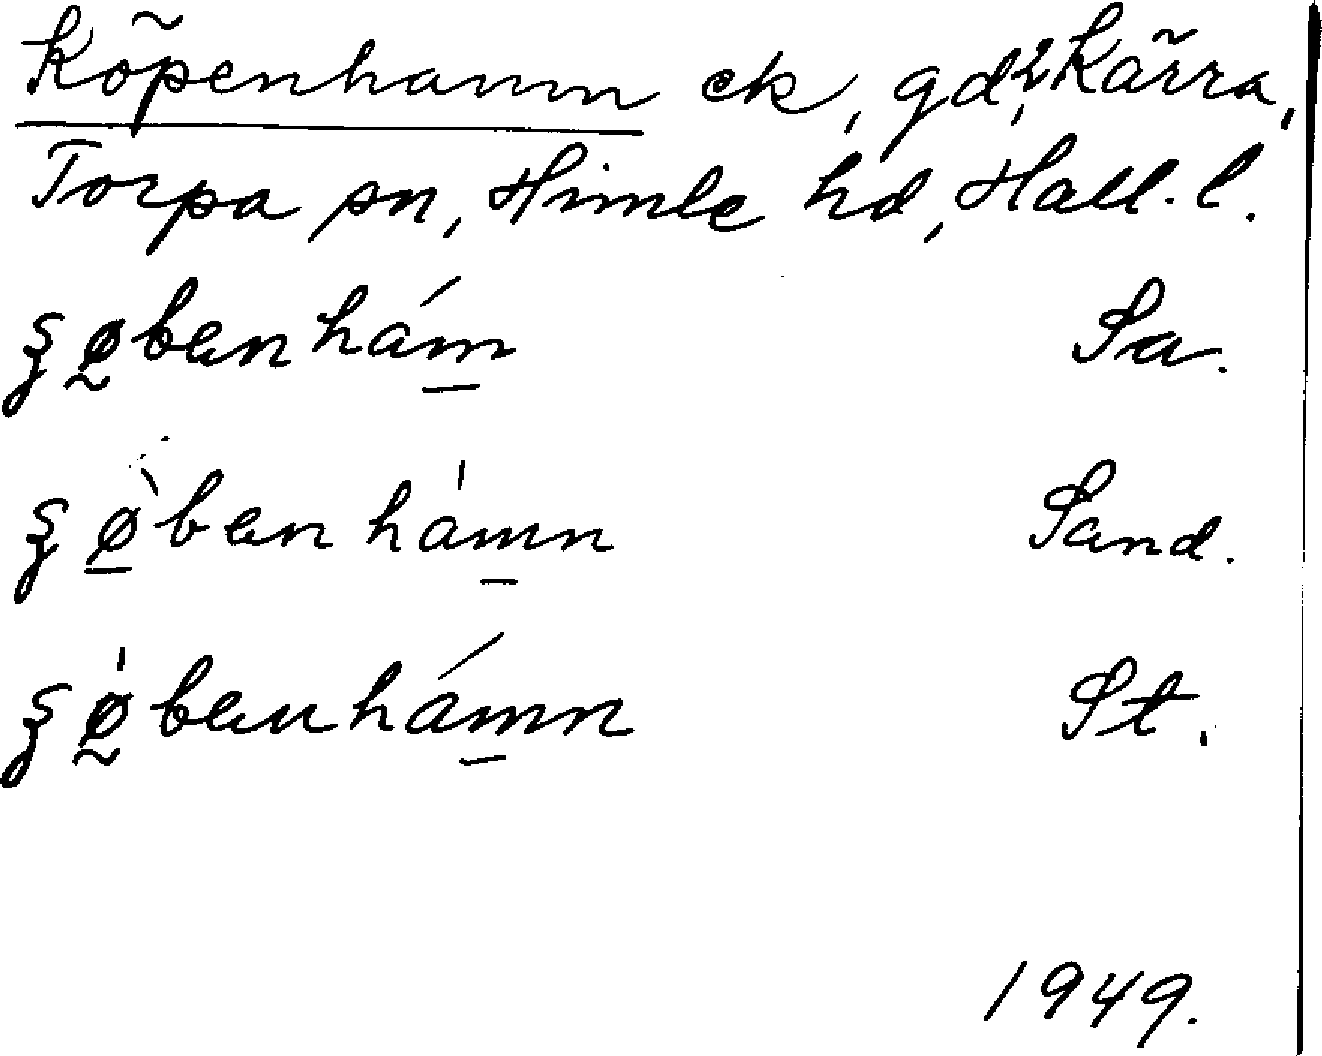 Köpenhamn ek, gd 2, Kärra,
Torpa sn, Himle hd, Hall. l.
ȿø̰bɐnhám̲ Sa.
ȿø̲̀bɐnhȧm̲n Sand.
ȿø̰̍bɐnhám̲n St.
1949.